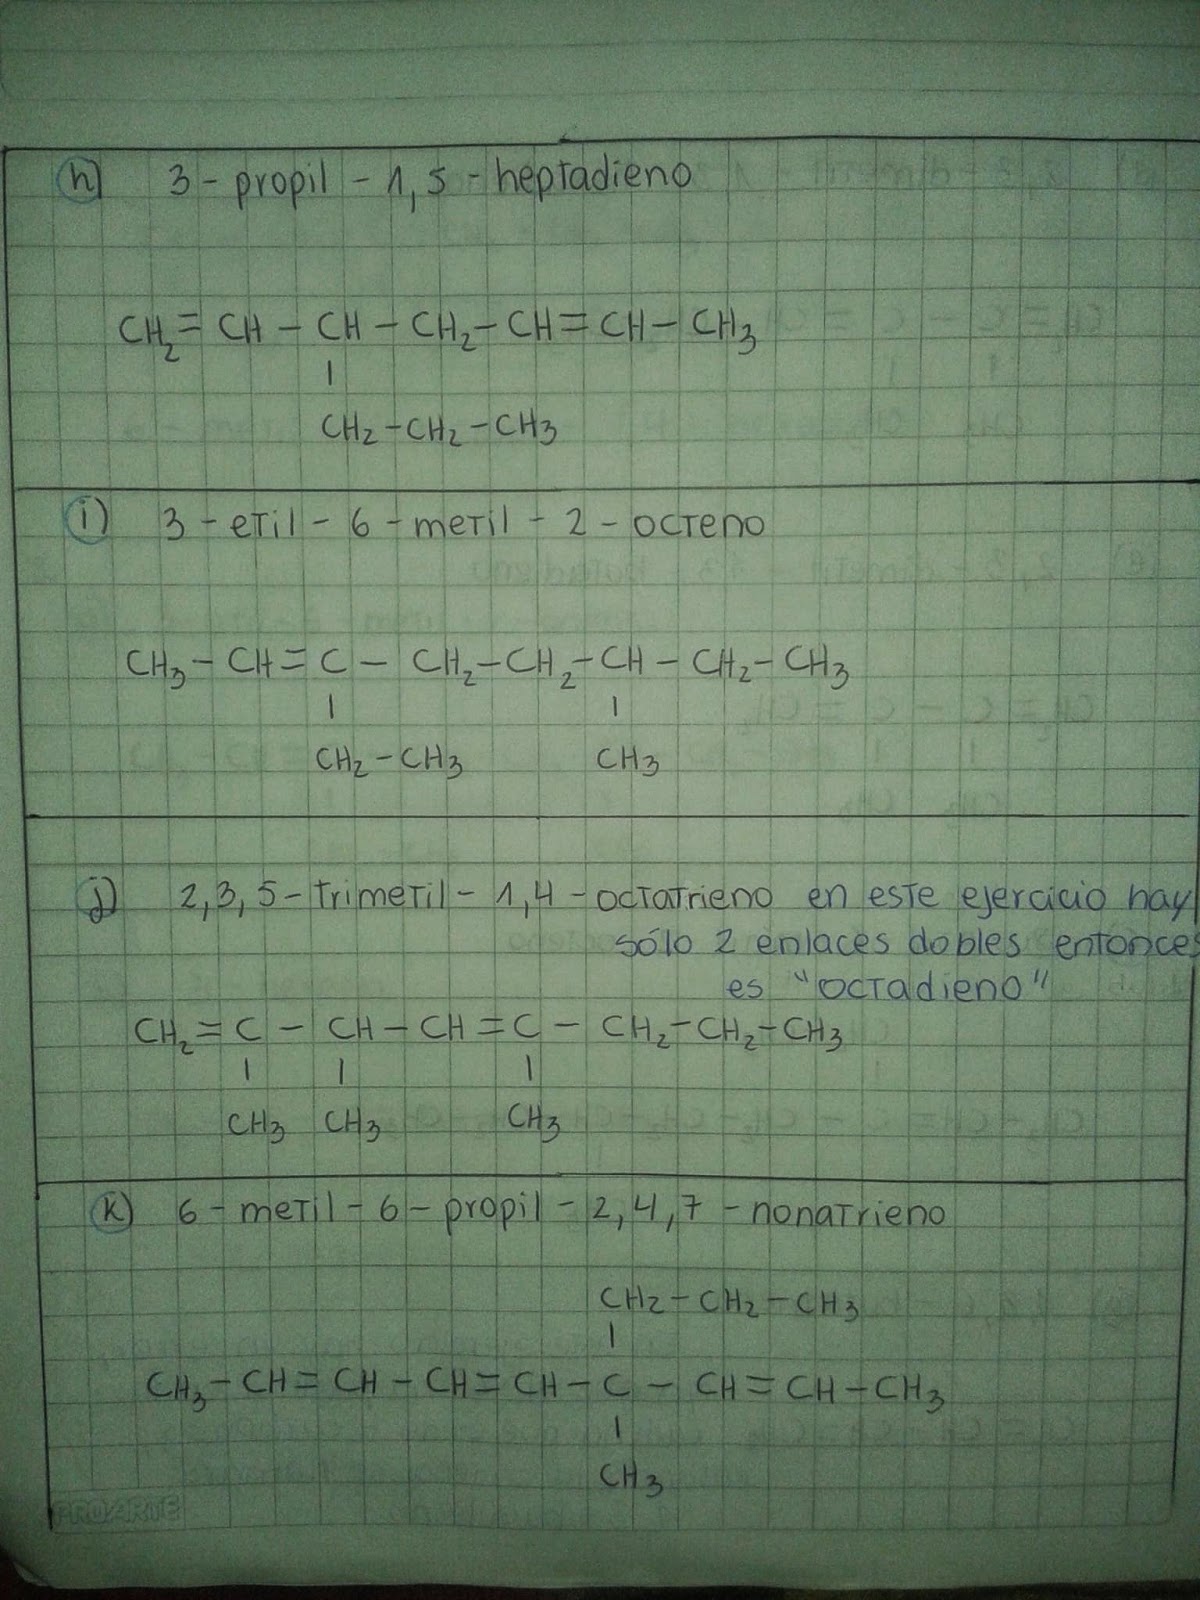 h) 3 - propil - 1,5 - heptadieno
CH2 = CH - CH - CH2 - CH = CH - CH3
CH2 - CH2 - CH3
i) 3 - etil - 6 - metil - 2 - octeno
CH3 - CH = C - CH2 - CH2 - CH - CH2 - CH3
CH2 - CH3 CH3
j) 2,3,5 - trimetil - 1,4 - octatrieno en este ejercicio hay
sólo 2 enlaces dobles entonces
es "octadieno"
CH2 = C - CH - CH = C - CH2 - CH2 - CH3
CH3 CH3 CH3
k) 6 - metil - 6 - propil - 2,4,7 - nonatrieno
CH2 - CH2 - CH3
CH3 - CH = CH - CH = CH - C - CH = CH - CH3
CH3
PROARTE